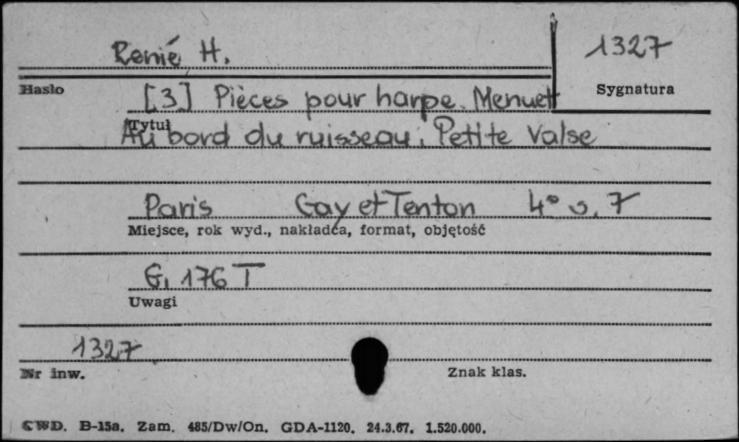 Renié H.
1327
Hasło
Sygnatura
[3] Pièces pour harpe. Menuett
Tytuł
Au bord du ruisseau, Petite Valse
Paris Gay et Tenton 4° s. 7
Miejsce, rok wyd., nakładca, format, objętość
G, 176 T
Uwagi
1327
Nr inw.
Znak klas.
CWD. B-15a. Zam. 485/Dw/On. GDA-1120. 24.3.67. 1.520.000.